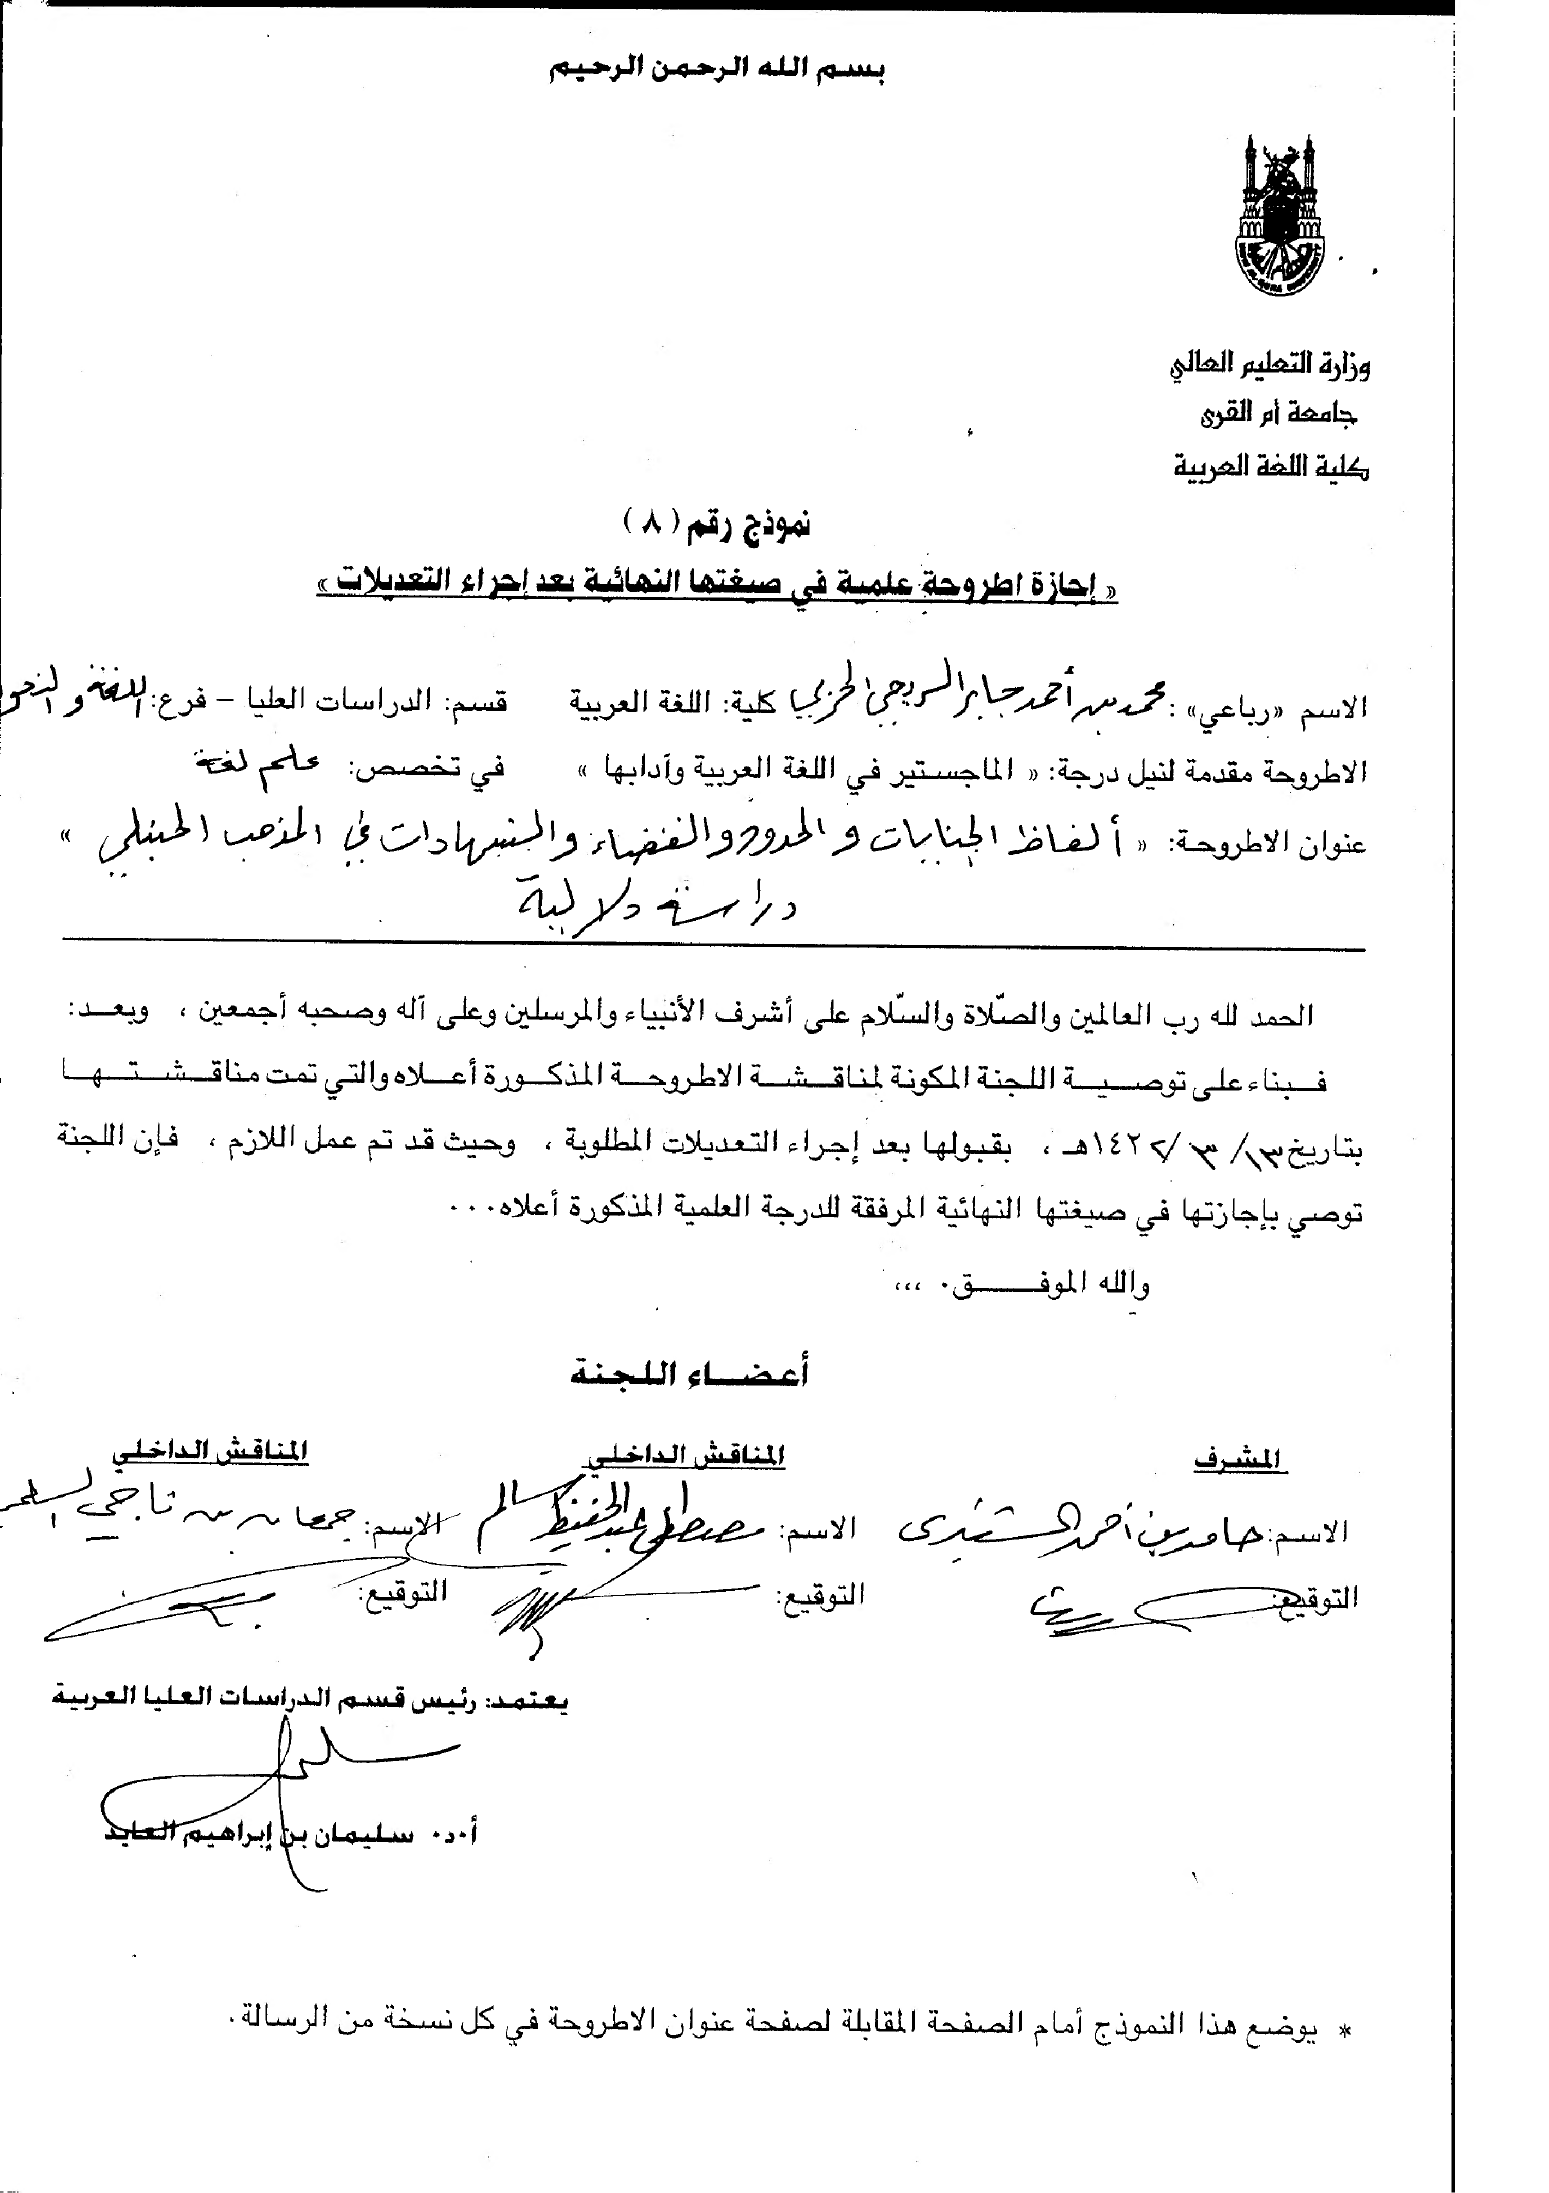 بسم الله الرحمن الرحيم
وزارة التعليم العالي
جامعة أم القرى
كلية اللغة العربية
نموذج رقم ( ٨ )
« إجازة اطروحة علمية في صيغتها النهائية بعد إجراء التعديلات »
الاسم «رباعي» : محمد بن أحمد جابر الحربي كلية: اللغة العربية قسم: الدراسات العليا – فرع: اللغة والنحو
الاطروحة مقدمة لنيل درجة: « الماجستير في اللغة العربية وآدابها » في تخصص: علم لغة
عنوان الاطروحة: « ألفاظ الجنايات والحدود والقضاء والشهادات في المذهب الحنبلي »
دراسة دلالية
الحمد لله رب العالمين والصّلاة والسّلام على أشرف الأنبياء والمرسلين وعلى آله وصحبه أجمعين ، وبعد:
فبناء على توصية اللجنة المكونة لمناقشة الاطروحة المذكورة أعلاه والتي تمت مناقشتها
بتاريخ ١٣/ ٣ / ١٤٢٢هـ ، بقبولها بعد إجراء التعديلات المطلوبة ، وحيث قد تم عمل اللازم ، فإن اللجنة
توصي بإجازتها في صيغتها النهائية المرفقة للدرجة العلمية المذكورة أعلاه...
والله الموفق. ،،،
أعضاء اللجنة
المشرف المناقش الداخلي المناقش الداخلي
الاسم: حامد بن أحمد الاسم: مصطفى عبدالحفيظ سالم الاسم: جمعان بن ناجي
التوقيع: التوقيع: التوقيع:
يعتمد: رئيس قسم الدراسات العليا العربية
أ.د. سليمان بن إبراهيم العايد
* يوضع هذا النموذج أمام الصفحة المقابلة لصفحة عنوان الاطروحة في كل نسخة من الرسالة.